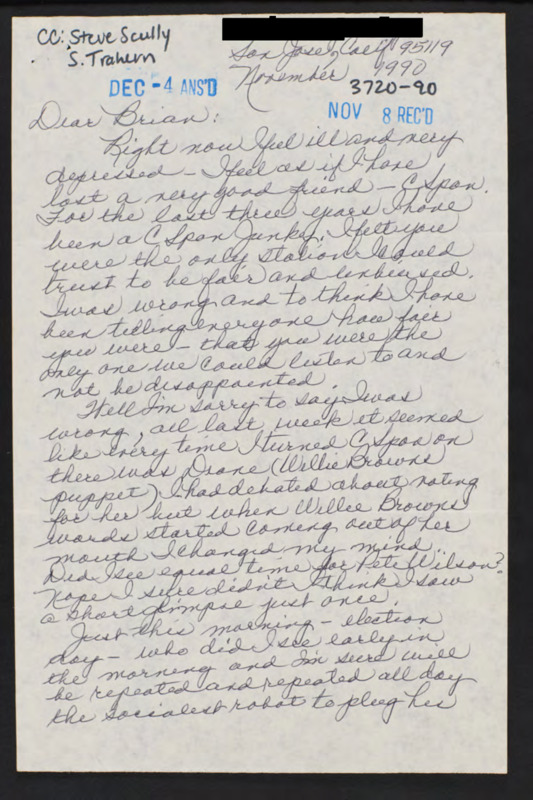 CC: Steve Scully
S. Trahern
San Jose, Calif 95119
November 1990
DEC -4 ANS'D
3720-90
NOV 8 REC'D
Dear Brian:
Right now I feel ill and very
depressed - I feel as if I have
lost a very good friend - C Span.
For the last three years I have
been a C Span Junky. I felt you
were the only station I could
trust to be fair and unbiased.
I was wrong and to think I have
been telling everyone how fair
you were - that you were the
only one we could listen to and
not be disappointed.
Well I'm sorry to say I was
wrong, all last week it seemed
like every time I turned C Span on
there was Diane (Willie Browns
puppet) I had debated about voting
for her but when Willie Browns
words started coming out of her
mouth I changed my mind.
Did I see equal time for Pete Wilson?
Nope I sure didn't I think I saw
a short glimpse just once.
Just this morning - election
day - who did I see early in
the morning and I'm sure will
be repeated and repeated all day
the socialist robot to plug his